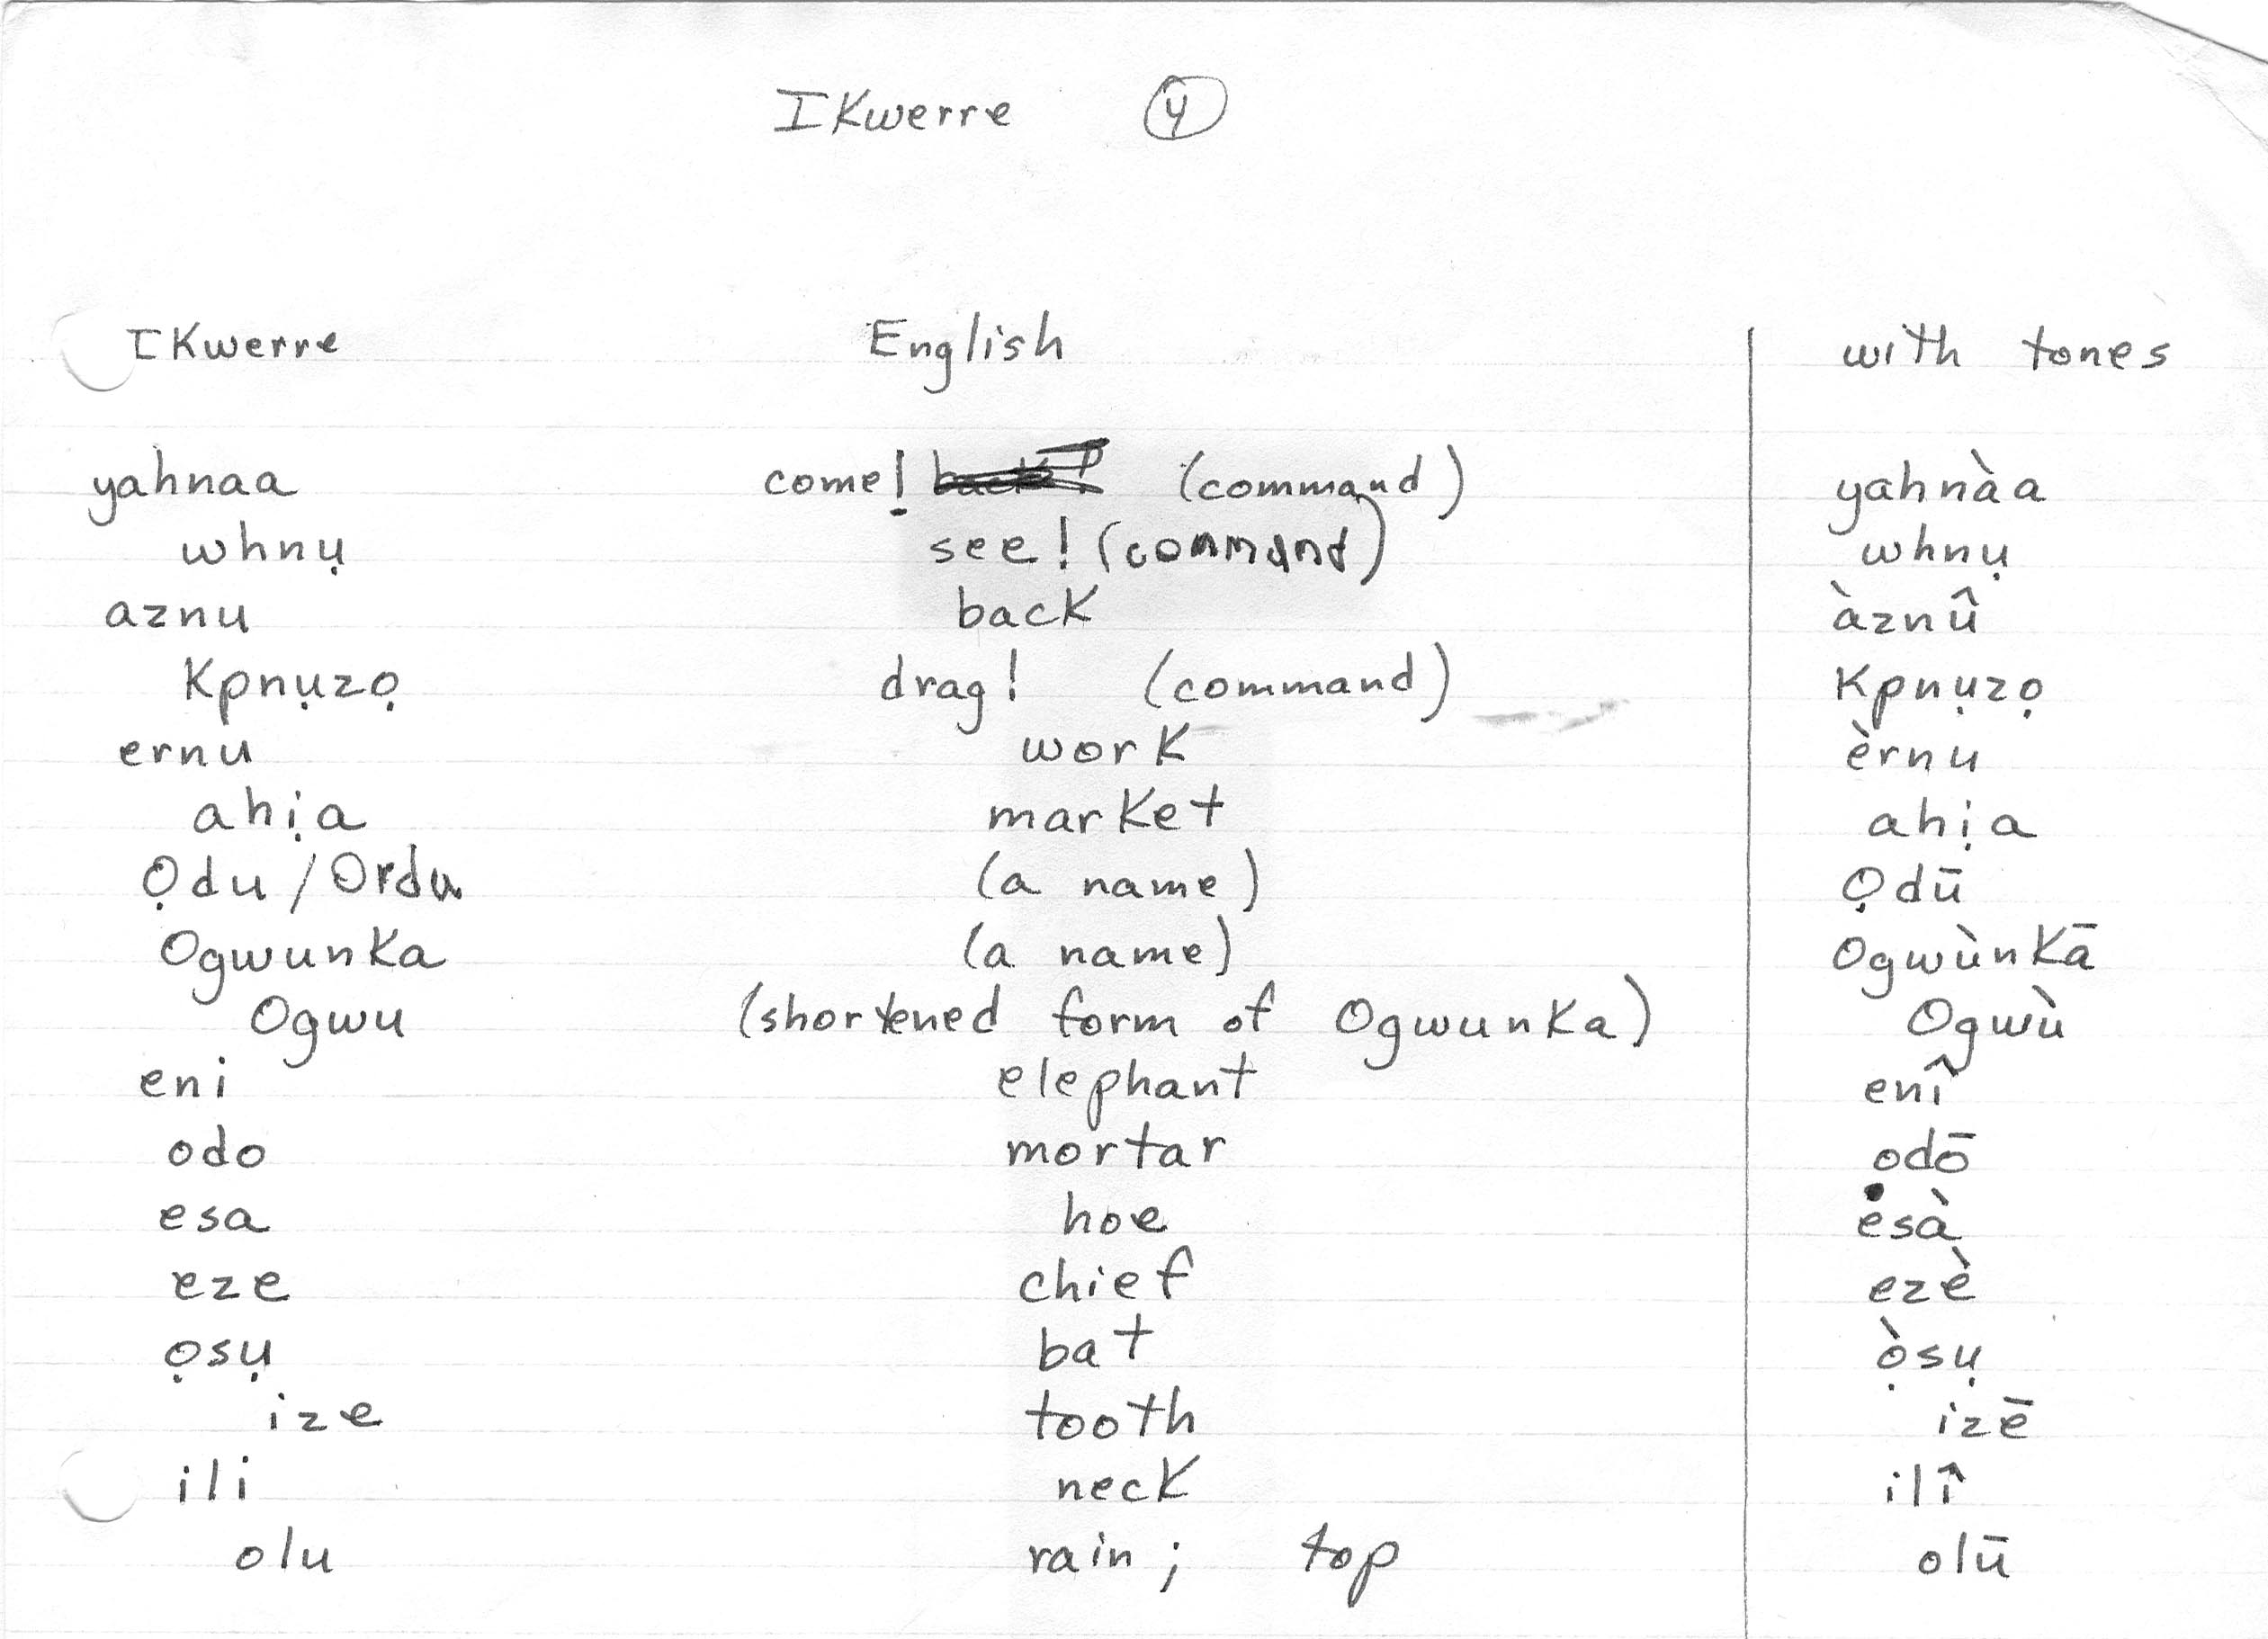 IKwerre 4
IKwerre English with tones
yahnaa come! (command) yahnàa
whnụ see! (command) whnụ
aznu back àznû
Kpnụzọ drag! (command) Kpnụzọ
ernu work èrnu
ahịa market ahịa
Ọdu / Ordu (a name) Ọdū
OgwunKa (a name) OgwùnKā
Ogwu (shortened form of OgwunKa) Ogwù
eni elephant enî
odo mortar odō
esa hoe esà
eze chief ezè
ọsụ bat ọ̀sụ
ize tooth izē
ili neck ilî
olu rain; top olū